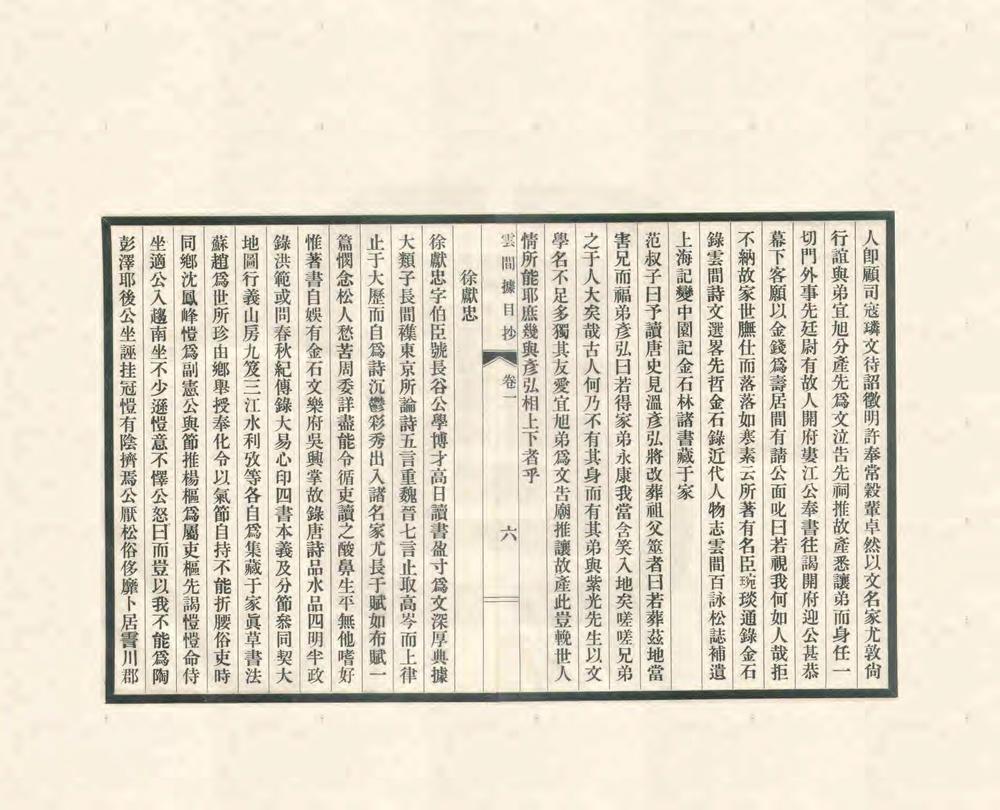 人卽顧司寇璘文待詔徵明許奉常穀輩卓然以文名家尤敦尙
行誼與弟宜旭分產先爲文泣告先祠推故產悉讓弟而身任一
切門外事先廷尉有故人開府婁江公奉書往謁開府迎公甚恭
幕下客願以金錢爲壽居間有請公面叱曰若視我何如人哉拒
不納故家世膴仕而落落如寒素云所著有名臣琬琰通錄金石
錄雲間詩文選畧先哲金石錄近代人物志雲間百詠松誌補遺
上海記變中園記金石林諸書藏于家
范叔子曰予讀唐史見溫彥弘將改葬祖父筮者曰若葬茲地當
害兄而福弟彥弘曰若得家弟永康我當含笑入地矣嗟嗟兄弟
之于人大矣哉古人何乃不有其身而有其弟與紫光先生以文
學名不足多獨其友愛宜旭弟爲文告廟推讓故產此豈輓世人
情所能耶庶幾與彥弘相上下者乎
雲間據目抄 卷一 六
徐獻忠
徐獻忠字伯臣號長谷公學博才高日讀書盈寸爲文深厚典據
大類子長間襍東京所論詩五言重魏晉七言止取高岑而上律
止于大歷而自爲詩沉鬱彩秀出入諸名家尤長于賦如布賦一
篇憫念松人愁苦周委詳盡能令循吏讀之酸鼻生平無他嗜好
惟著書自娛有金石文樂府吳興掌故錄唐詩品水品四明半政
錄洪範或問春秋紀傳錄大易心印四書本義及分節叅同契大
地圖行義山房九笈三江水利攷等各自爲集藏于家眞草書法
蘇趙爲世所珍由鄉舉授奉化令以氣節自持不能折腰俗吏時
同鄉沈鳳峰愷爲副憲公與節推楊樞爲屬吏樞先謁愷愷命侍
坐適公入趨南坐不少遜愷意不懌公怒曰而豈以我不能爲陶
彭澤耶後公坐誣挂冠愷有陰擠焉公厭松俗侈靡卜居霅川郡